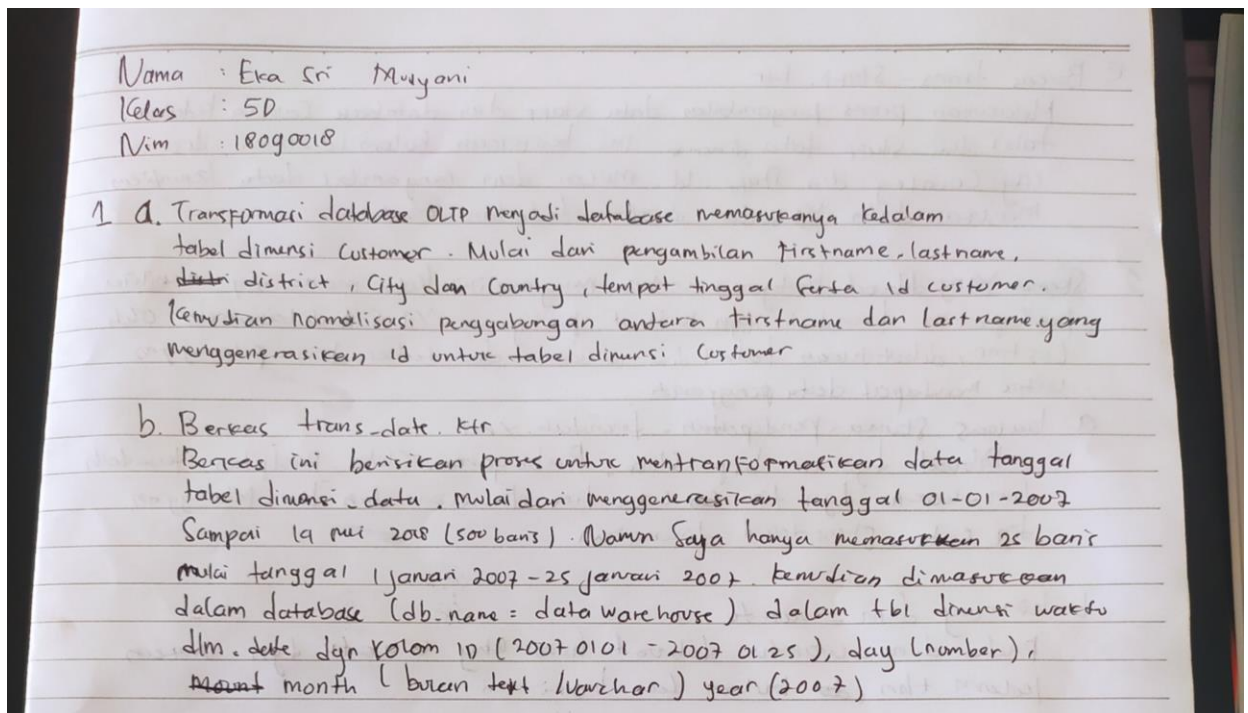 Nama : Eka Sri Muryani
Kelas : 5D
Nim : 18090018
1 a. Transformasi database OLTP menjadi database memasukanya kedalam
tabel dimensi Customer. Mulai dari pengambilan firstname, lastname,
district, City dan Country, tempat tinggal serta id customer.
Kemudian normalisasi penggabungan antara firstname dan lastname yang
menggenerasikan id untuk tabel dimensi Customer
b. Berkas trans_date. ktr
Berkas ini berisikan proses untuk mentranformatikan data tanggal
tabel dimensi data. Mulai dari menggenerasikan tanggal 01-01-2007
Sampai 19 mei 2008 (500 baris). Namun Saya hanya memasukkan 25 baris
mulai tanggal 1 januari 2007 - 25 januari 2007. kemudian dimasukkan
dalam database (db.name = data warehouse) dalam tbl dimensi waktu
dlm. date dgn kolom ID (20070101 - 20070125), day (number),
month (bulan text / varchar) year (2007)